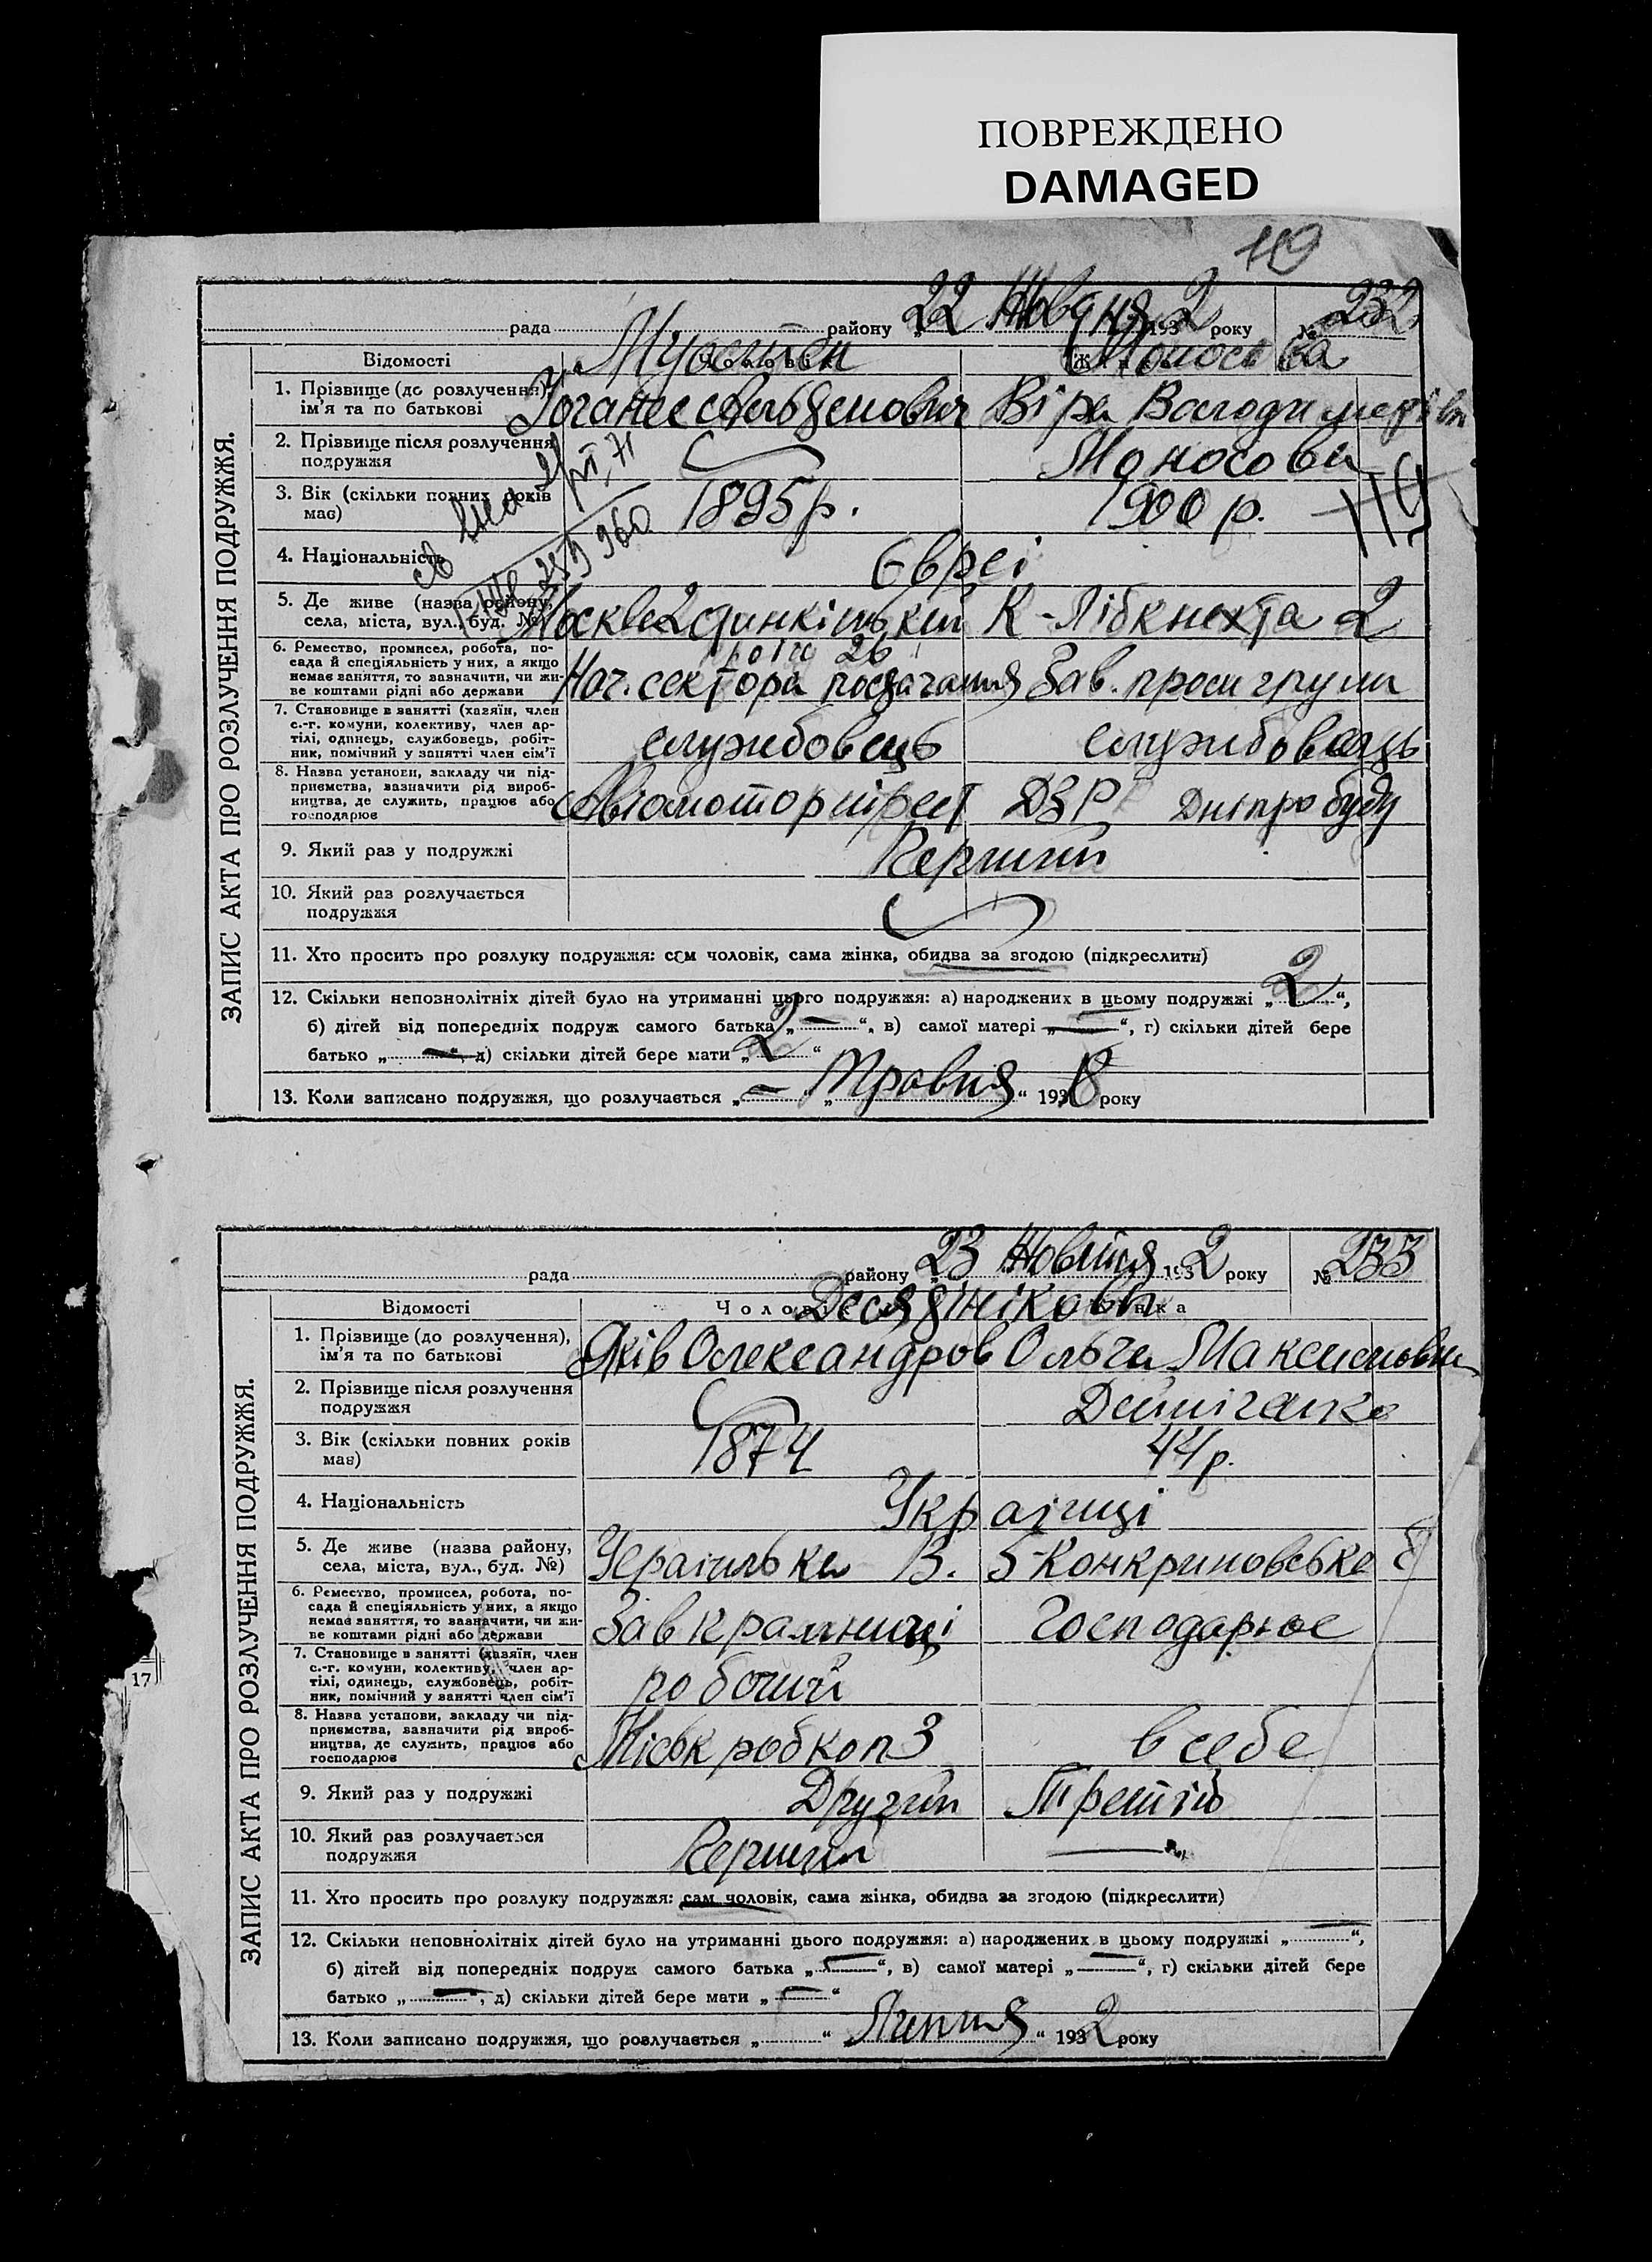 ПОВРЕЖДЕНО
DAMAGED
119
ЗАПИС АКТА ПРО РОЗЛУЧЕННЯ ПОДРУЖЖЯ.
рада району „22 Жовтня 1932 року № 232
Відомості Чоловік Жінка
1. Прізвище (до розлучення),
ім'я та по батькові
Віра Володимирівн
2. Прізвище після розлучення
подружжя
Моносова
3. Вік (скільки повних років
має)
1895 р. 1900 р.
119
4. Національність
Євреї
5. Де живе (назва району,
села, міста, вул., буд. №)
Москва 2 К-Лібкнехта 2
26
6. Ремество, промисел, робота, по-
сада й спеціяльність у них, а якщо
немає заняття, то зазначити, чи жи-
ве коштами рідні або держави
Нач. сектора постачання Зав. групи
7. Становище в занятті (хазяїн, член
с.-г. комуни, колективу, член ар-
тілі, одинець, службовець, робіт-
ник, помічний у занятті член сім'ї
службовець службовець
8. Назва установи, закладу чи під-
приємства, зазначити рід вироб-
ництва, де служить, працює або
господарює
Авіомотортрест ДЗР Дніпробуду
9. Який раз у подружжі
Перший
10. Який раз розлучається
подружжя
11. Хто просить про розлуку подружжя: сам чоловік, сама жінка, обидва за згодою (підкреслити)
12. Скільки неповнолітніх дітей було на утриманні цього подружжя: а) народжених в цьому подружжі „2“,
б) дітей від попередніх подруж самого батька „—“, в) самої матері „—“, г) скільки дітей бере
батько „—“, д) скільки дітей бере мати „2“
13. Коли записано подружжя, що розлучається „—“ „Травня“ 1918 року
ЗАПИС АКТА ПРО РОЗЛУЧЕННЯ ПОДРУЖЖЯ.
рада району „23 Жовтня 1932 року № 233
Відомості Чоловік Жінка
1. Прізвище (до розлучення),
ім'я та по батькові
Яків Олександров Ольга Максимовна
2. Прізвище після розлучення
подружжя
3. Вік (скільки повних років
має)
1874 44 р.
4. Національність
Українці
5. Де живе (назва району,
села, міста, вул., буд. №)
6. Ремество, промисел, робота, по-
сада й спеціяльність у них, а якщо
немає заняття, то зазначити, чи жи-
ве коштами рідні або держави
Зав крамниці Господарює
7. Становище в занятті (хазяїн, член
с.-г. комуни, колективу, член ар-
тілі, одинець, службовець, робіт-
ник, помічний у занятті член сім'ї
робочий
8. Назва установи, закладу чи під-
приємства, зазначити рід вироб-
ництва, де служить, працює або
господарює
Міськробкоп 3 в себе
9. Який раз у подружжі
Другий Третій
10. Який раз розлучається
подружжя
Перший —
11. Хто просить про розлуку подружжя: сам чоловік, сама жінка, обидва за згодою (підкреслити)
12. Скільки неповнолітніх дітей було на утриманні цього подружжя: а) народжених в цьому подружжі „—“,
б) дітей від попередніх подруж самого батька „—“, в) самої матері „—“, г) скільки дітей бере
батько „—“, д) скільки дітей бере мати „—“
13. Коли записано подружжя, що розлучається „ “ Липня“ 1932 року
17